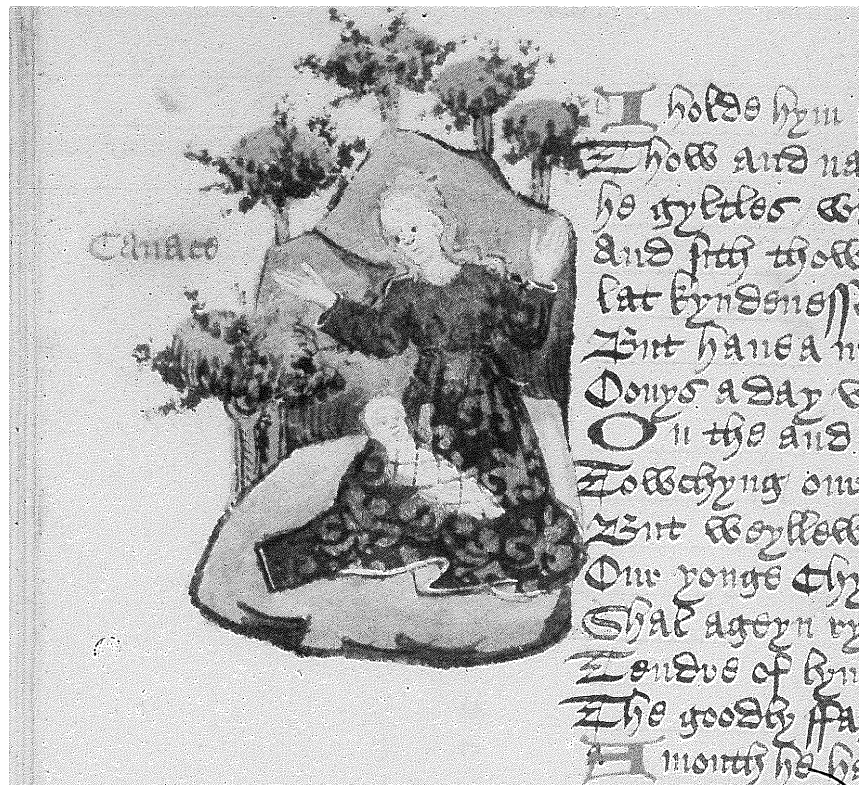 Canace
I holde hym
Thow and
he gyltles
And sith thow
lat kyndeness
But haue a
Oonys a day
On the and
Towchyng our
But weyllew
Our yonge Chy
Shal ageyn
Tendre of
The goodly ffa
A month he he